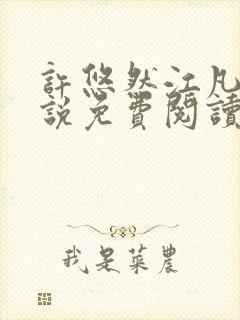 許悠然江凡
說免費閱讀
我是菜農